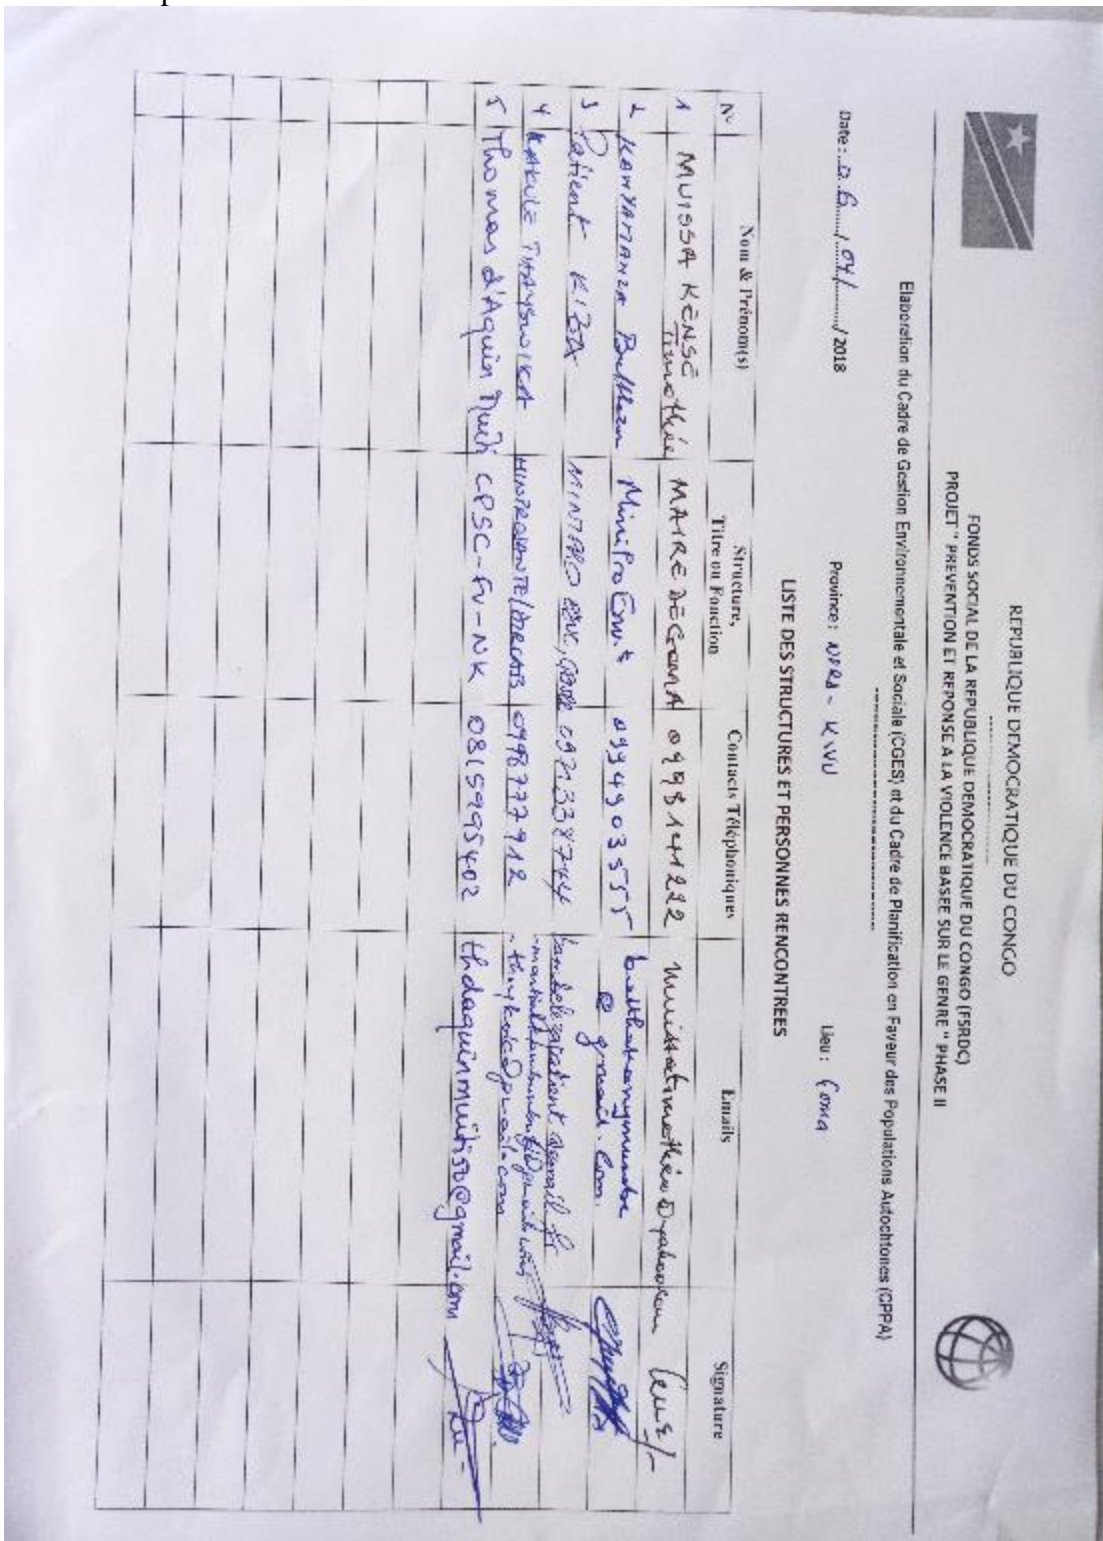 REPUBLIQUE DEMOCRATIQUE DU CONGO
FONDS SOCIAL DE LA REPUBLIQUE DEMOCRATIQUE DU CONGO (FSRDC)
PROJET " PREVENTION ET REPONSE A LA VIOLENCE BASEE SUR LE GENRE " PHASE II
Elaboration du Cadre de Gestion Environnementale et Sociale (CGES) et du Cadre de Planification en Faveur des Populations Autochtones (CPPA)
Date : 06 / 04 / 2018 Province : NORD - KIVU Lieu : Goma
LISTE DES STRUCTURES ET PERSONNES RENCONTREES
N° Nom & Prénom(s) Structure, Titre ou Fonction Contacts Téléphoniques Emails Signature
1 MUISSA KENSE Timothée MAIRE DE GOMA 0998141222
2 MiniPro Env.t 0994903555 @ gmail.com.
3 Patient KIZA 0971338744
4 KAKULE 0998777912
5 Thomas d'Aquin Muiti CPSC-FV-NK 0815995402 thdaquinmuitiso@gmail.com